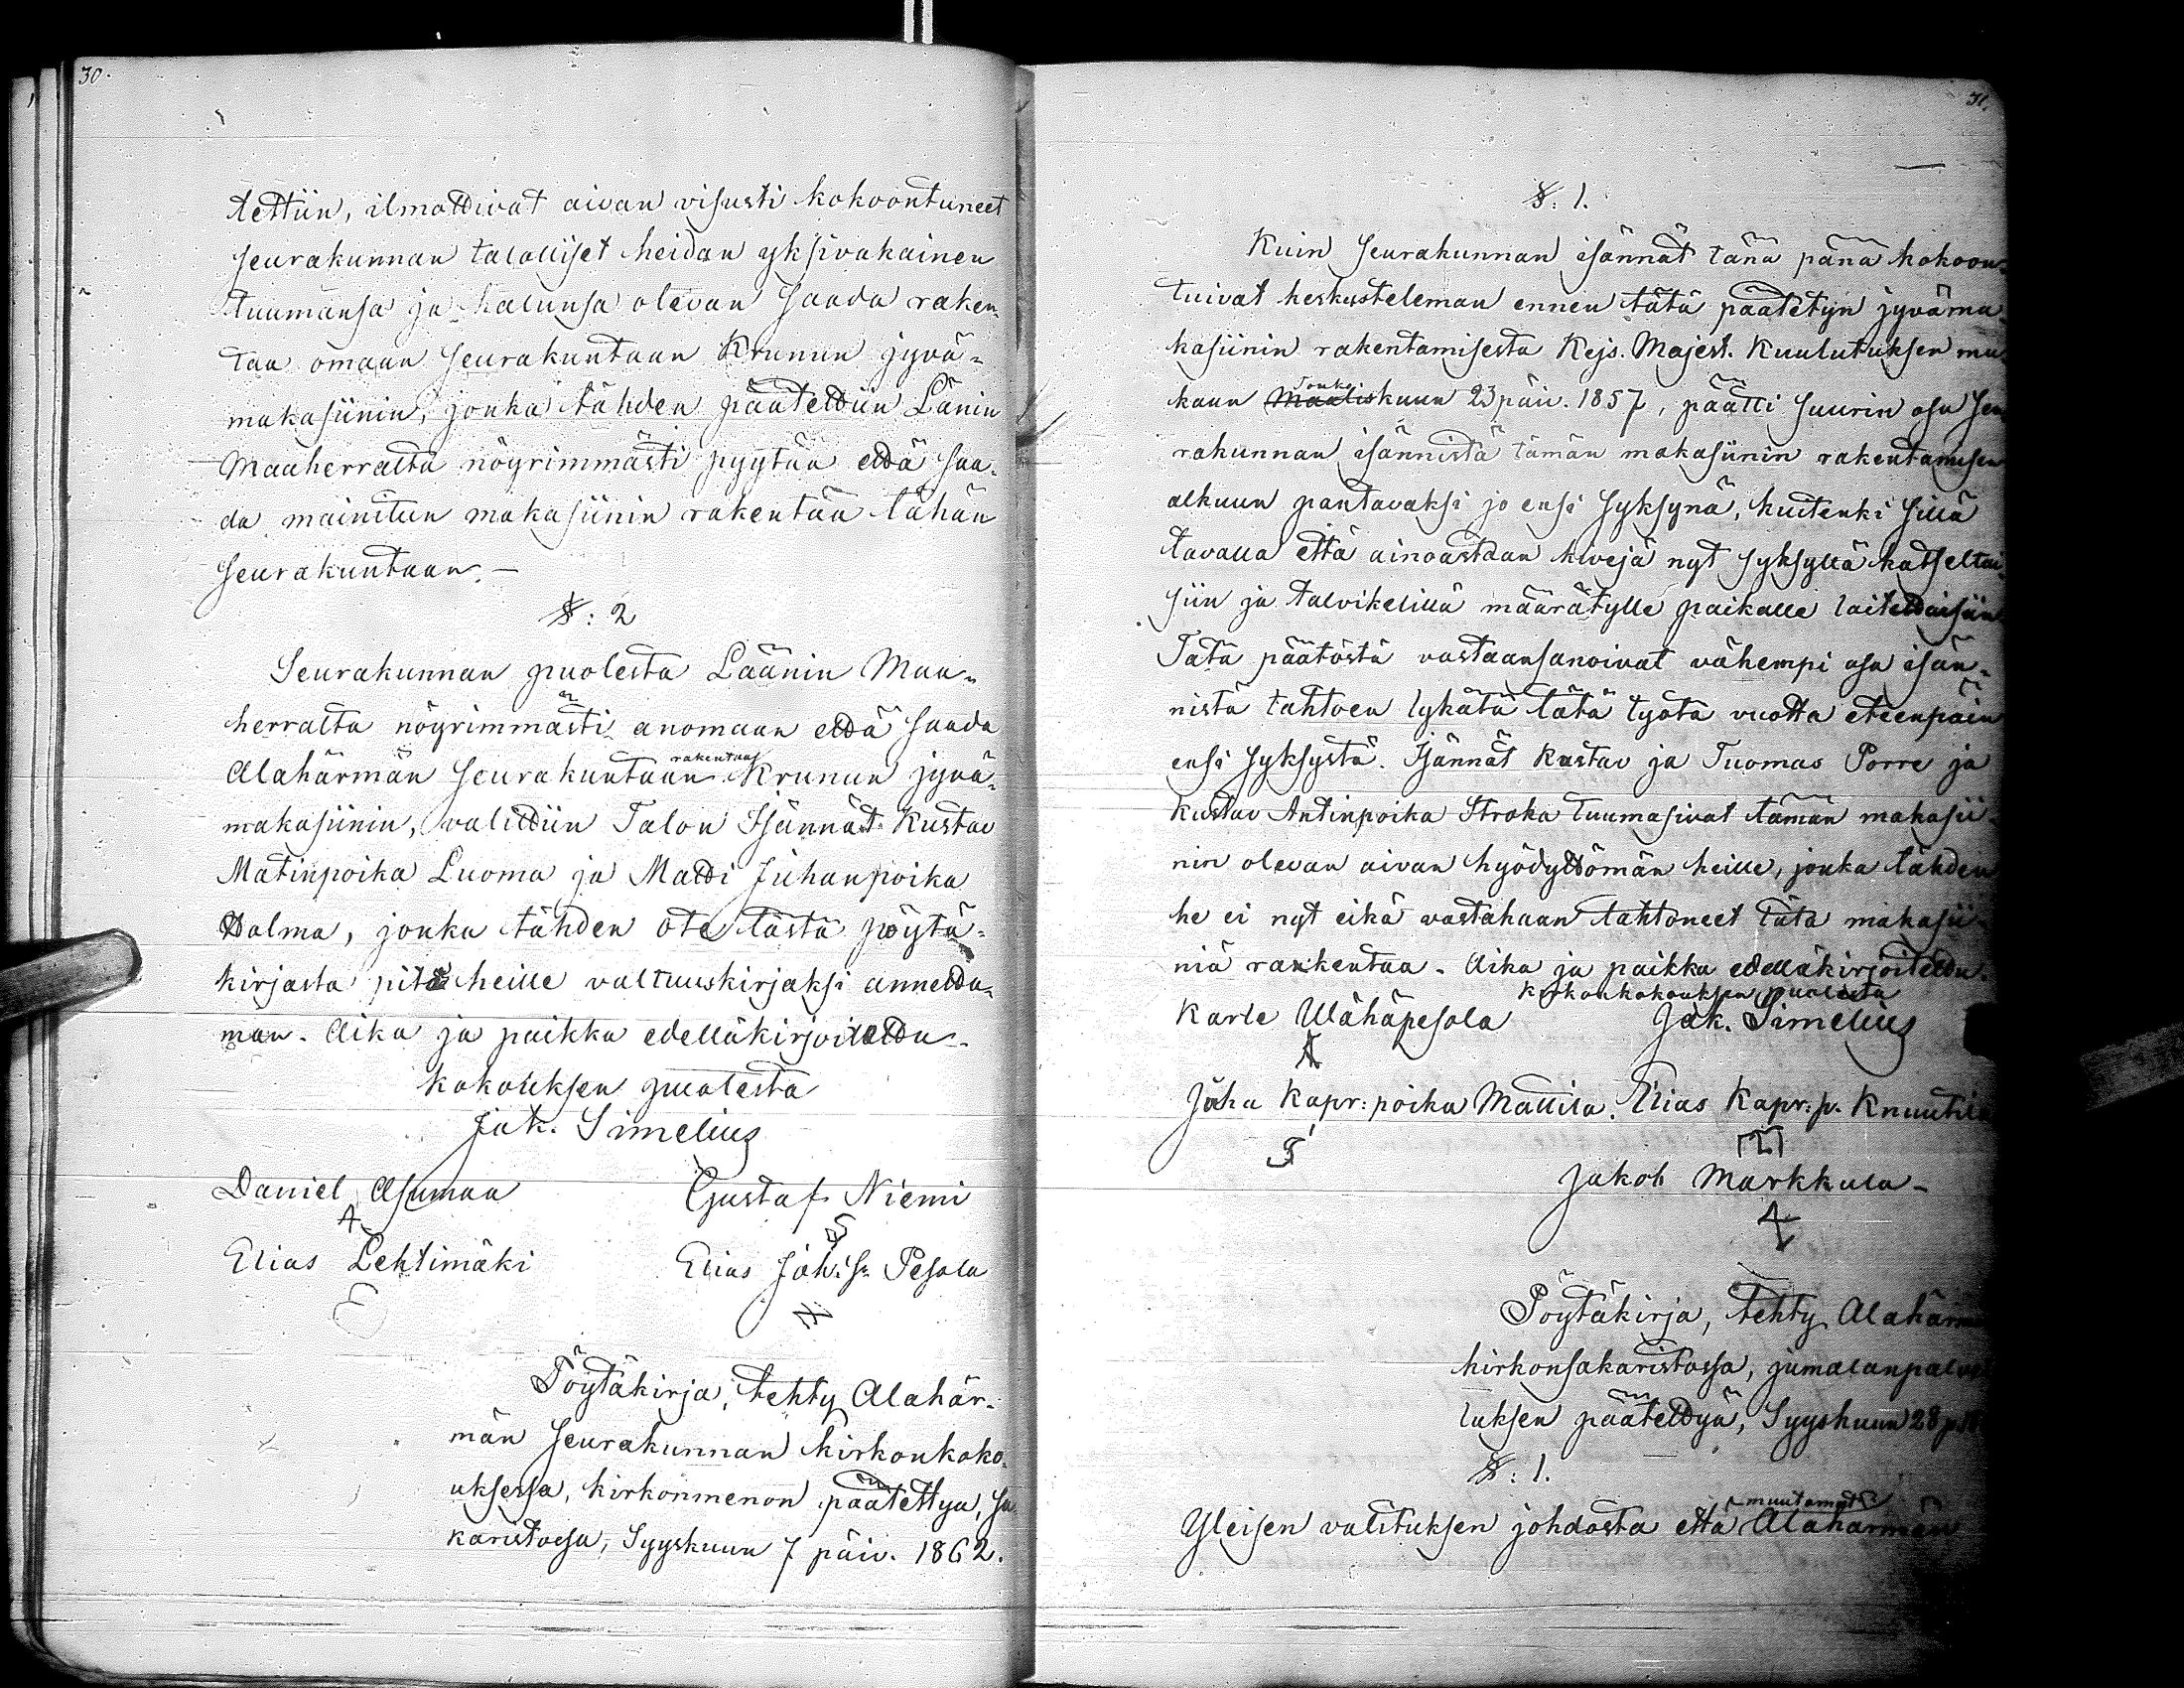 30.
tettiin, ilmottivat aivan visusti kokoontuneet
seurakunnan talolliset heidan yksivakainen
tuumansa ja halunsa olevan saada raken-
taa omaan seurakuntaan Krunun jyvä-
makasiinin, jonka tähden päätettiin Länin
Maaherralta nöyrimmästi pyytää että saa-
da mainitun makasiinin rakentaa tähän
seurakuntaan. —
§: 2
Seurakunnan puolesta Läänin Maa-
herralta nöyrimmästi anomaan että saada
rakentaa
Alahärmän seurakuntaan Krunun jyvä-
makasiinin, valittiin Talon Isännät Kustav
Matinpoika Luoma ja Matti Juhanpoika
Halma, jonka tähden ote tästä pöytä-
kirjasta pitä heille valtuuskirjaksi annetta-
man. Aika ja paikka edelläkirjoitettu.
Kokouksen puolesta
Jak. Simelius
Daniel Asumaa Gustaf Niemi
A
Elias Lehtimäki Elias Joh:s. Pesola
E
Pöytäkirja, tehty Alahär-
män seurakunnan kirkonkoko-
uksessa, kirkonmenon päätettyä, sa-
karistossa, Syyskuun 7 päiv. 1862.
31.
§: 1.
Kuin seurakunnan isännät tänä pänä kokoon-
tuivat keskusteleman ennen tätä päätetyn jyväma-
kasiinin rakentamisesta Kejs. Majest. Kuulutuksen mu-
Touko
kaan Maaliskuun 23 päiv. 1857, päätti suurin osa seu-
rakunnan isännistä tämän makasiinin rakentamisen
alkuun pantavaksi jo ensi syksynä, kuitenki sillä
tavalla että ainoastaan kivejä nyt syksyllä katseltai-
siin ja talvikelillä määrätylle paikalle laitettaisiin
Tätä päätöstä vastaansanoivat vähempi osa isän-
nistä tahtoen lykätä tätä työtä vuotta eteenpäin
ensi syksystä. Isännät Kustav ja Tuomas Porre ja
Kustav Antinpoika Stroka tuumasivat tämän makasii-
nin olevan aivan hyödyttömän heille, jonka tähden
he ei nyt eikä vastahaan tahtoneet tätä makasii-
niä rakentaa. Aika ja paikka edelläkirjoitettu.
Kirkonkokouksen puolesta
Karle Wähäpesola Jak. Simelius
Juha Kapr: poika Mattila. Elias Kapr. p. Knuutila
Jakob Markkula
Pöytäkirja, tehty Alahärmän
kirkonsakaristossa, jumalanpalve-
luksen päätettyä, Syyskuun 28 p.
§: 1.
muutamat
Yleisen valituksen johdosta että Alahärmän